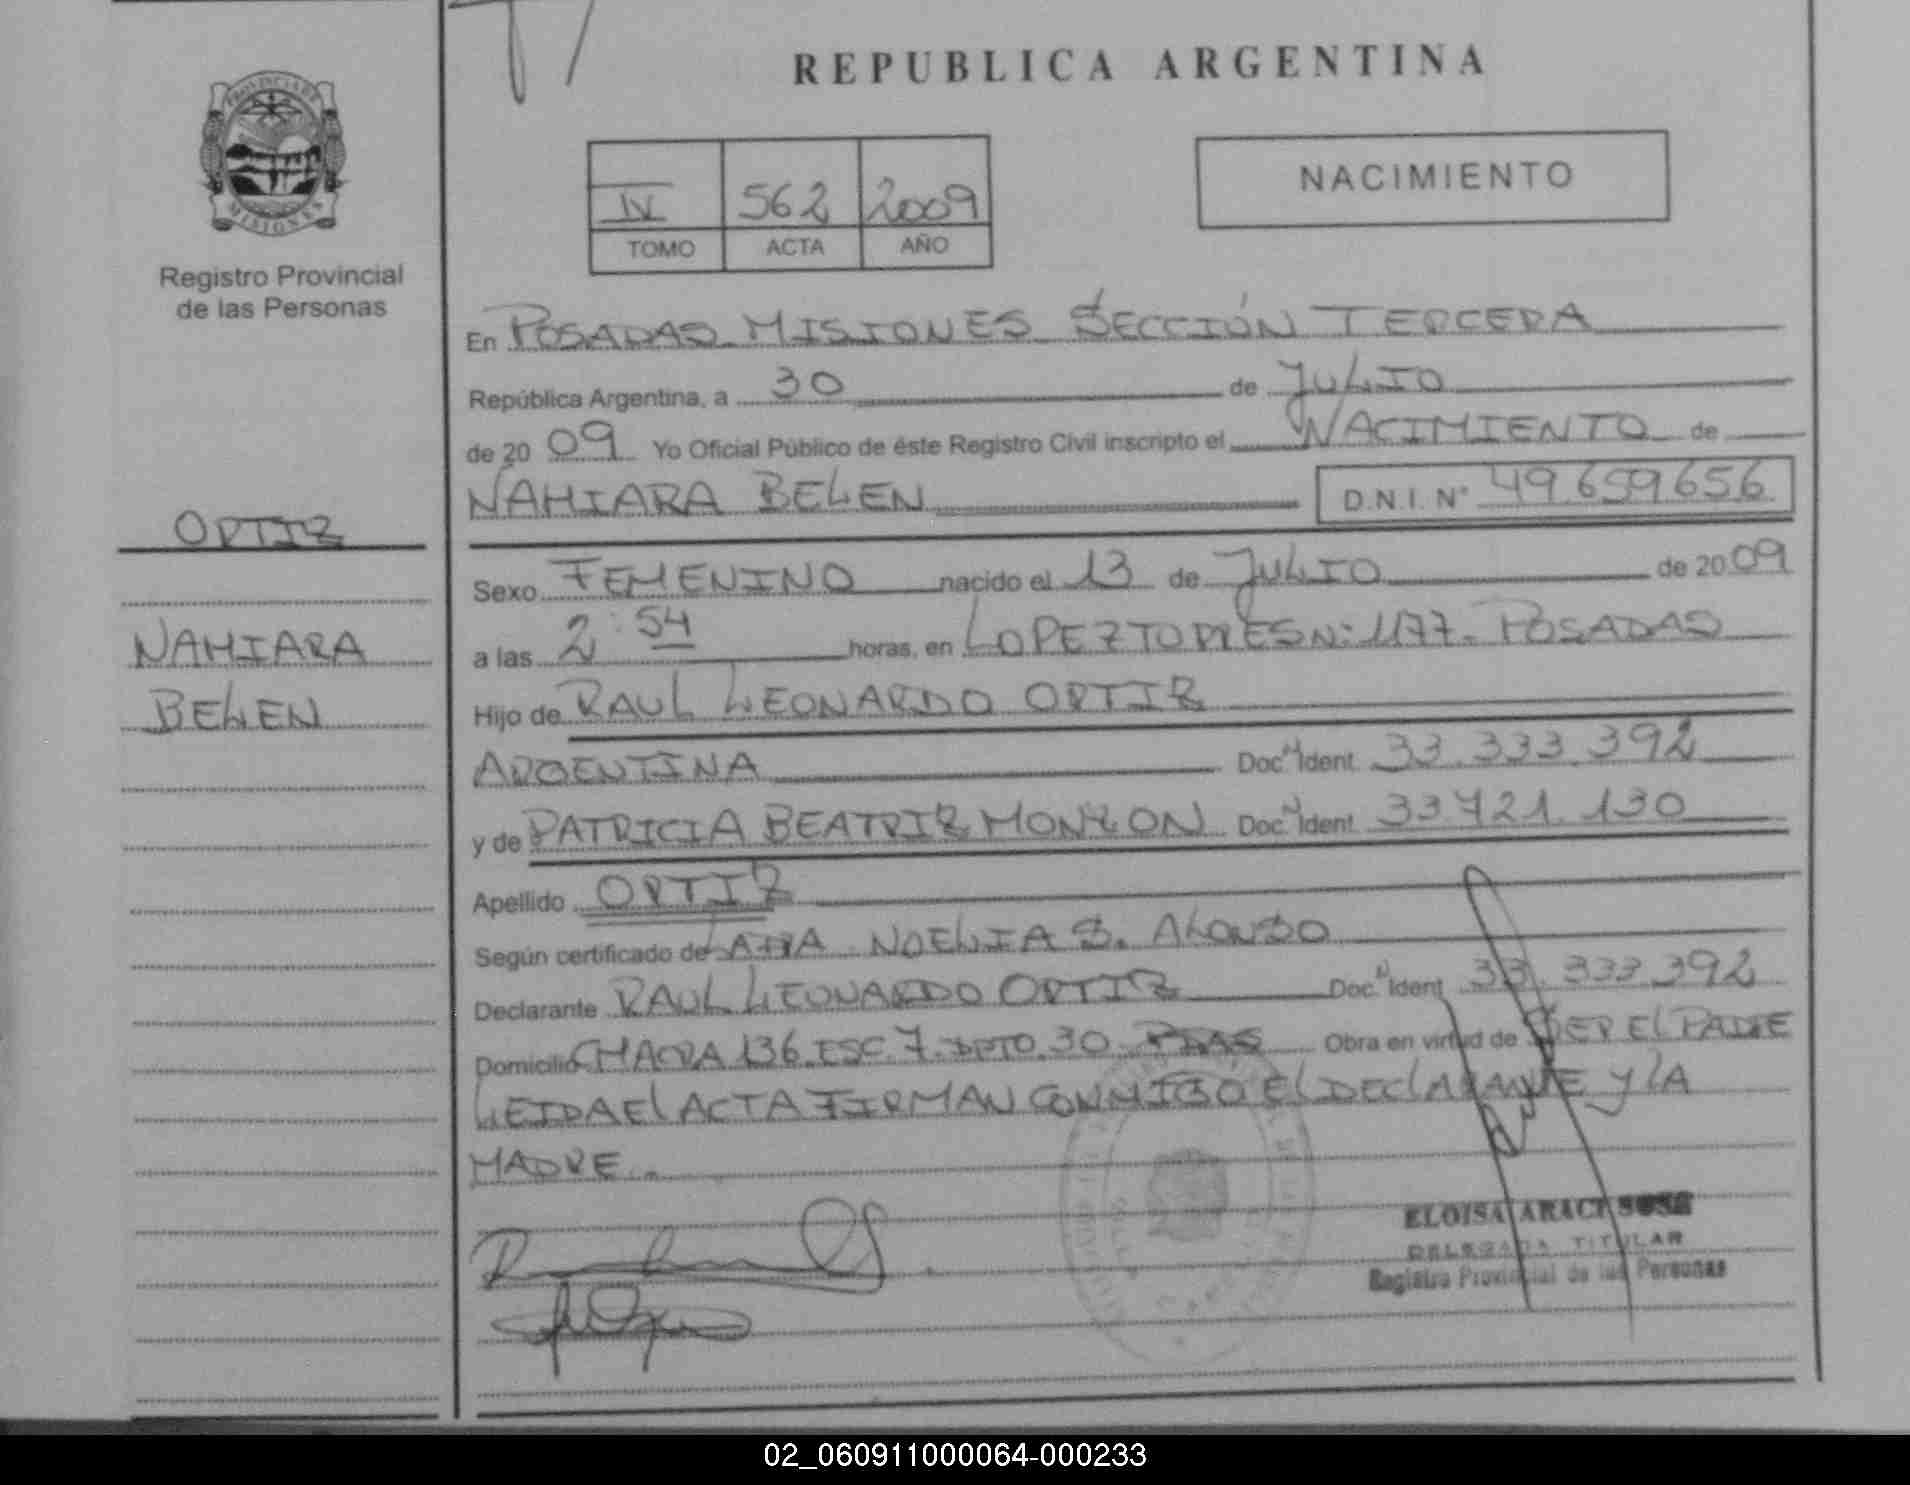 REPUBLICA ARGENTINA
PROVINCIA DE
MISIONES
Registro Provincial
de las Personas
IV 562 2009
TOMO ACTA AÑO
NACIMIENTO
En POSADAS MISIONES SECCIÓN TERCERA
República Argentina, a 30 de JULIO
de 2009 Yo Oficial Público de éste Registro Civil inscripto el NACIMIENTO de
NAHIARA BELEN D.N.I. N° 49.659.656
ORTIZ
NAHIARA
BELEN
Sexo FEMENINO nacido el 13 de JULIO de 2009
a las 2:54 horas, en LOPEZ TORRES N: 1177. POSADAS
Hijo de RAUL LEONARDO ORTIZ
ARGENTINA Doc. Ident. 33.333.392
y de PATRICIA BEATRIZ MONZON Doc. Ident. 33.721.130
Apellido ORTIZ
Según certificado de NOELIA S. ALONSO
Declarante RAUL LEONARDO ORTIZ Doc. Ident. 33.333.392
Domicilio CHACRA 136. ESC. 7. DPTO. 30. PDAS Obra en virtud de SER EL PADRE
LEIDA EL ACTA FIRMAN CONMIGO EL DECLARANTE Y LA
MADRE..
ELOISA ARACI SOSA
DELEGADA TITULAR
Registro Provincial de las Personas
02_060911000064-000233